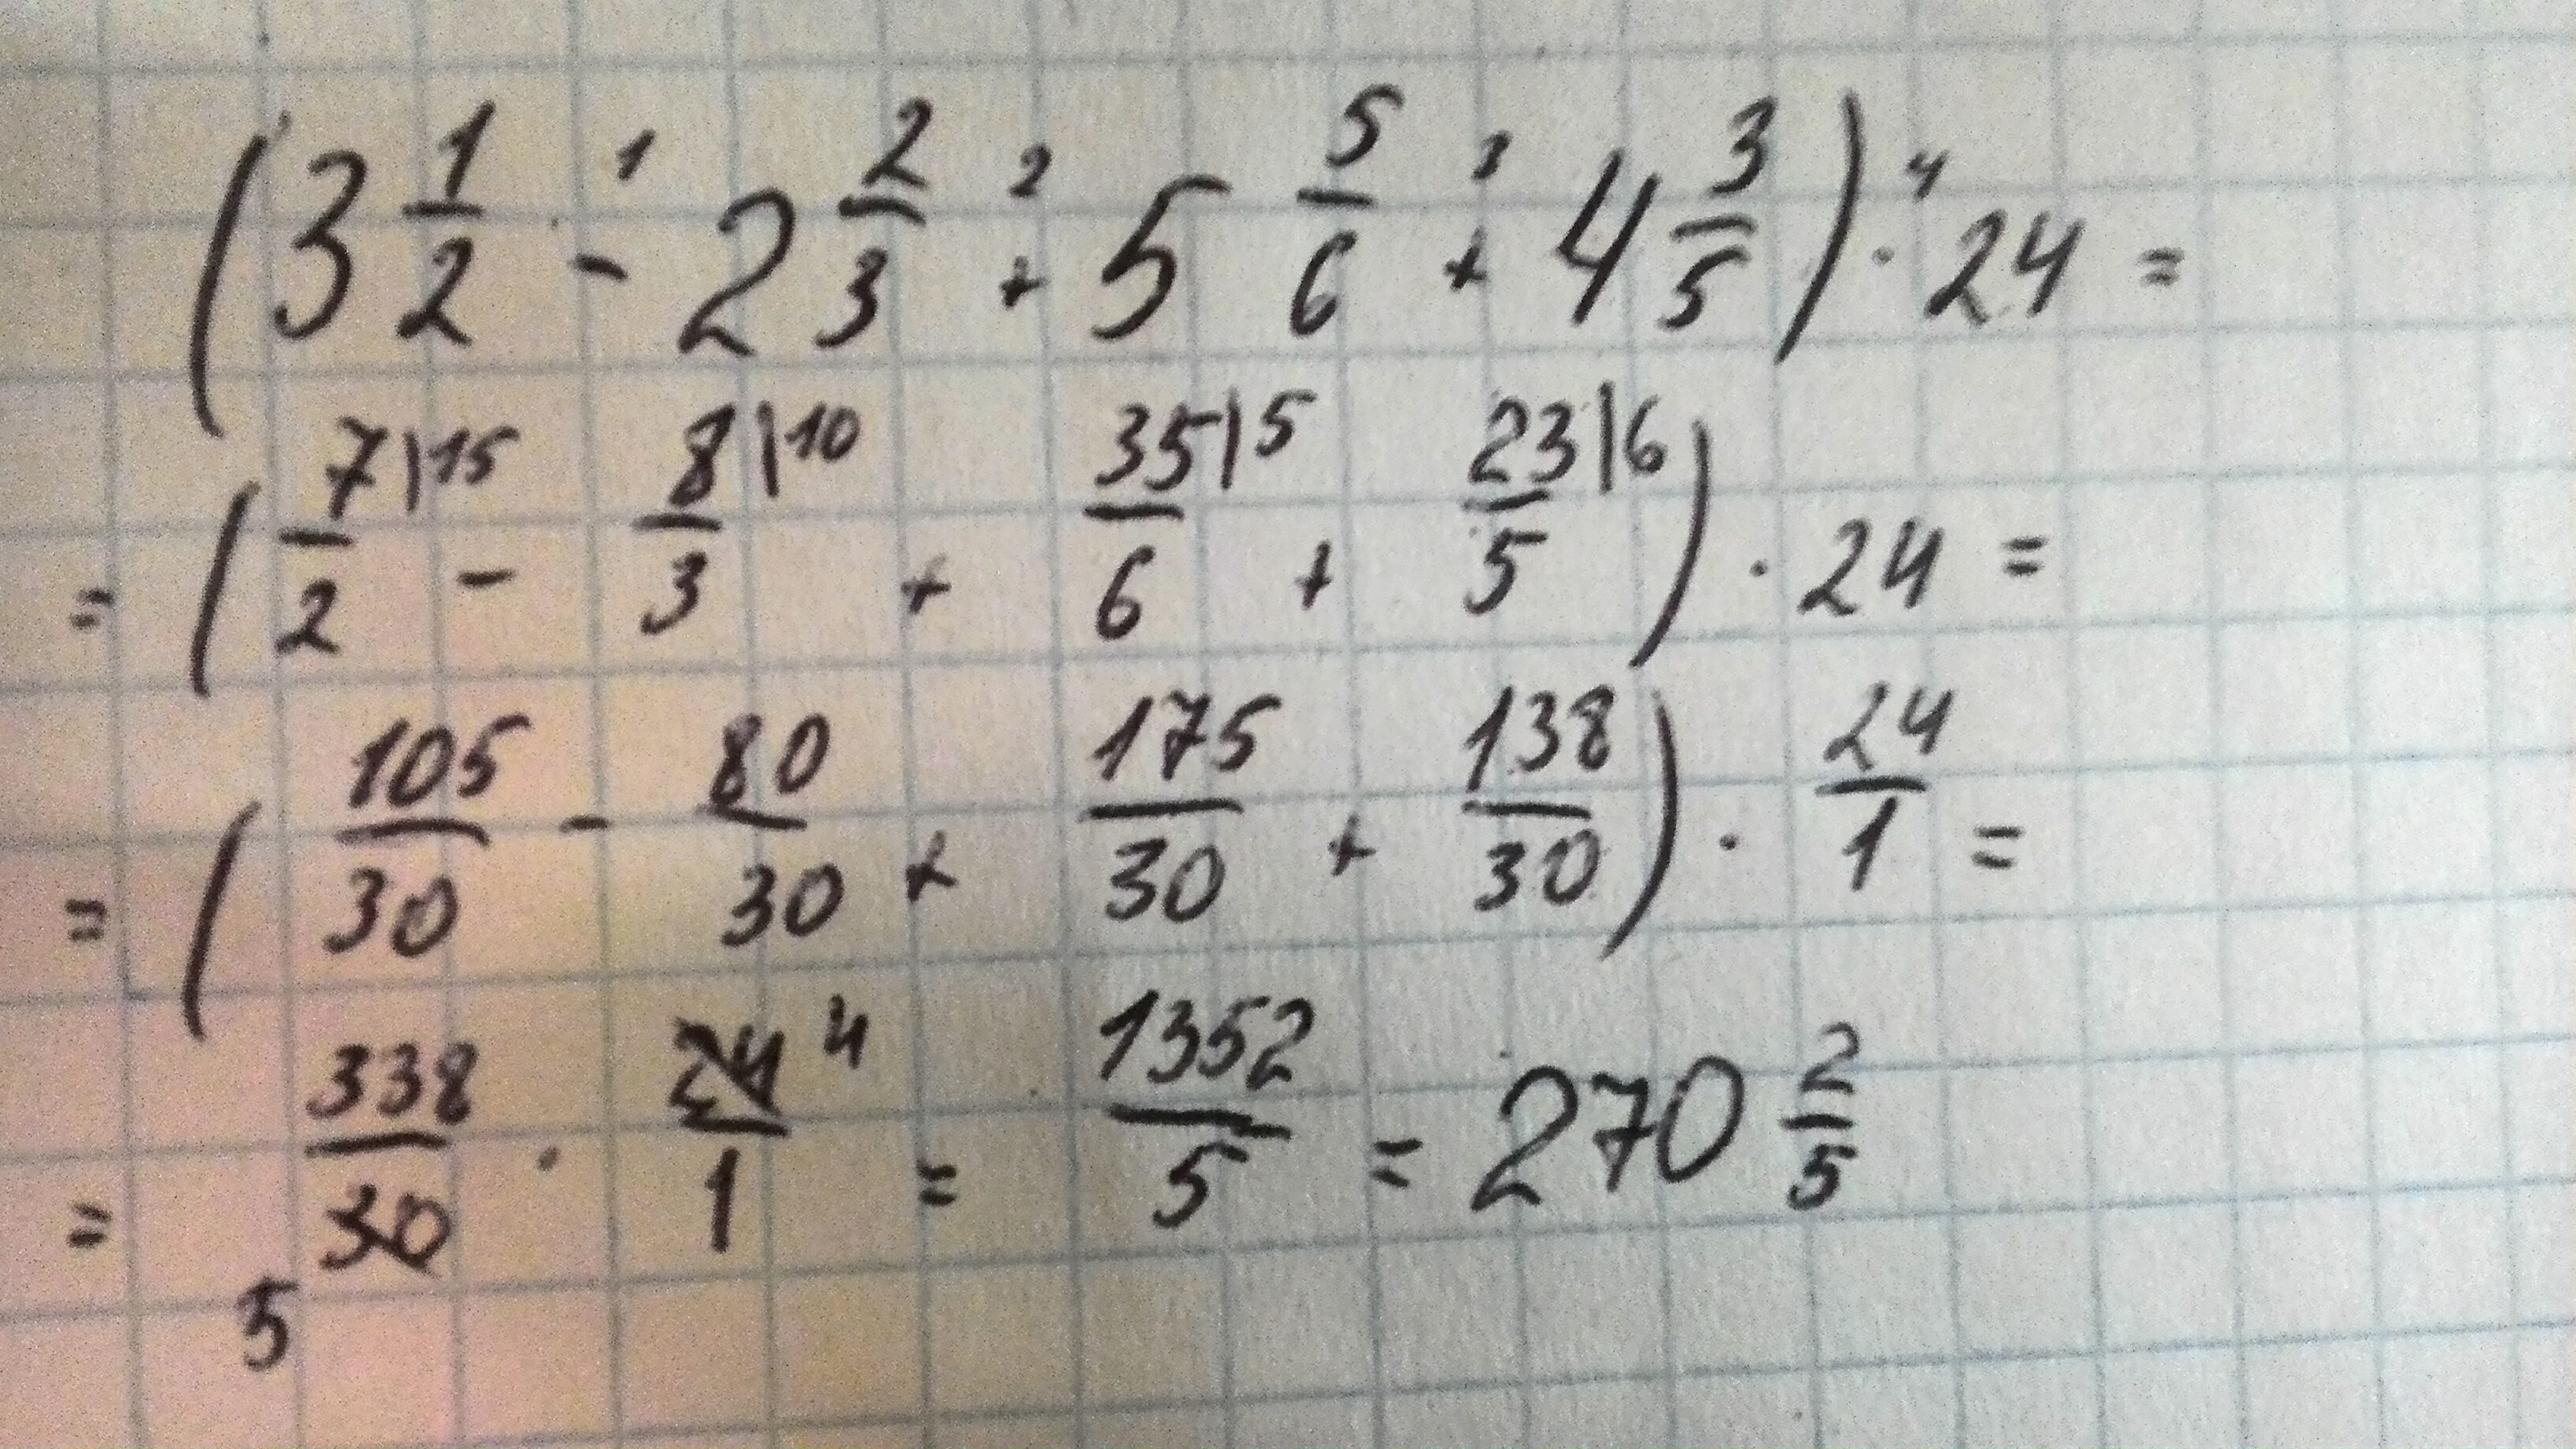 (3 1/2 -¹ 2 2/3 +² 5 5/6 +³ 4 3/5) ·⁴ 24 =
= (7|15/2 - 8|10/3 + 35|5/6 + 23|6/5) · 24 =
= (105/30 - 80/30 + 175/30 + 138/30) · 24/1 =
= 338/30 · 24 4/1 = 1352/5 = 270 2/5
5